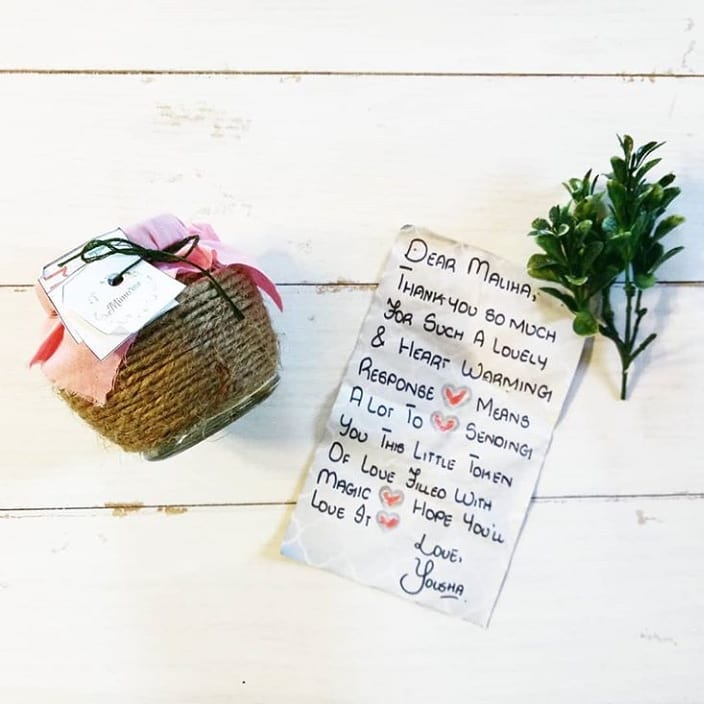 Dear Maliha,
Thank you so much
For Such A Lovely
& Heart Warming
Response Means
A Lot To Sending
You This Little Token
Of Love Filled With
Magic Hope You'll
Love It
Love,
Yousha.